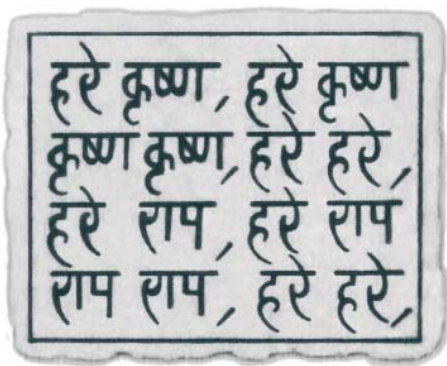 हरे कृष्ण, हरे कृष्ण
कृष्ण कृष्ण, हरे हरे,
हरे राप, हरे राप
राप राप, हरे हरे,